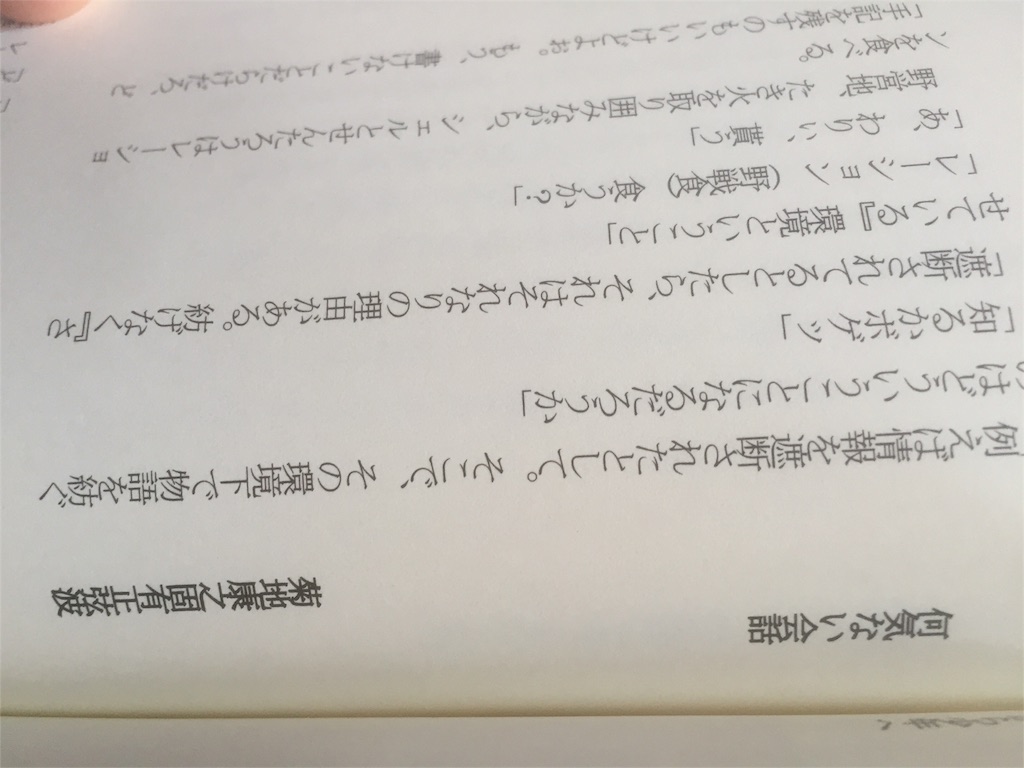 何気ない会話
菊地康之固有正弦波
例えば情報を遮断されたとして。そこで、その環境下で物語を紡ぐ
のはどういうことになるだろうか」
「知るかボゲッ」
「遮断されてるとしたら、それはそれなりの理由がある。紡げなく『さ
せている』環境ということ」
「レーション（野戦食）食うか？」
「あ、わりい、貰う」
野営地、たき火を取り囲みながら、ジェルとせんたろうはレーショ
ンを食べる。
「手記を残すのもいいけどよお。もう、書けないことだらけだろ、と